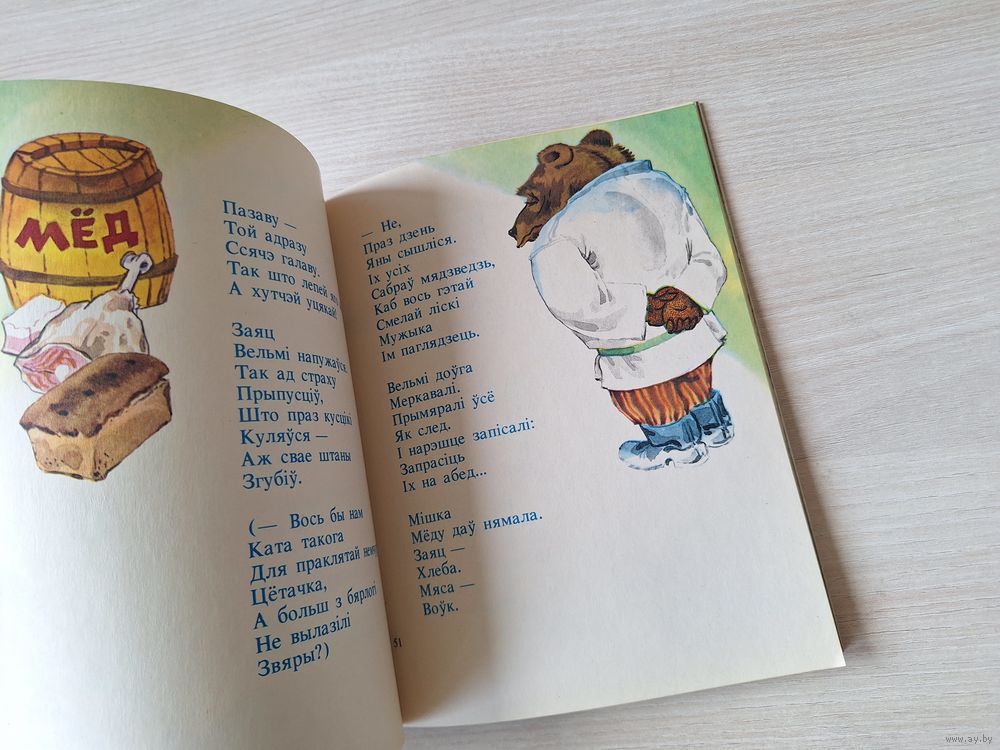 МЁД
Пазаву —
Той адразу
Ссячэ галаву.
Так што лепей
А хутчэй уцякай!
Заяц
Вельмі напужаўся
Так ад страху
Прыпусціў,
Што праз кусцікі
Куляўся —
Аж свае штаны
Згубіў.
(— Вось бы нам
Ката такога
Для праклятай
Цётачка,
А больш з бярлогі
Не вылазілі
Звяры?)
— Не,
Праз дзень
Яны сышліся.
Іх усіх
Сабраў мядзведзь,
Каб вось гэтай
Смелай ліскі
Мужыка
Ім паглядзець.
Вельмі доўга
Меркавалі.
Прымяралі ўсё
Як след.
І нарэшце запісалі:
Запрасіць
Іх на абед...
Мішка
Мёду даў нямала.
Заяц —
Хлеба.
Мяса —
Воўк.
51
www.ay.by